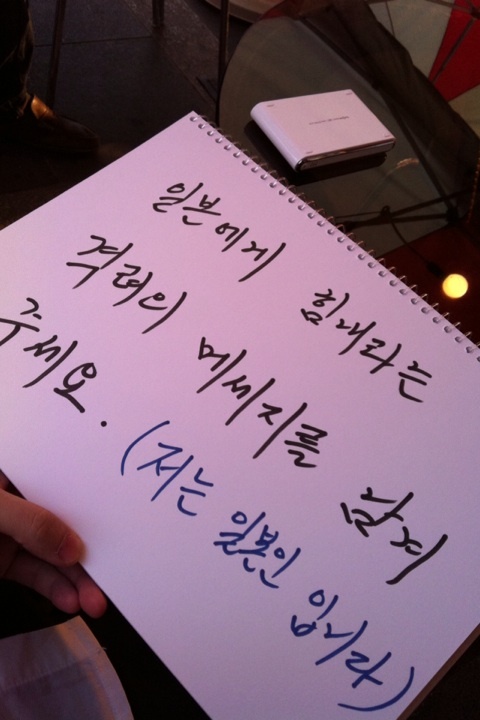 일본에게 힘내라는
격려의 메세지를 남겨
주세요.
(저는 일본인 입니다)